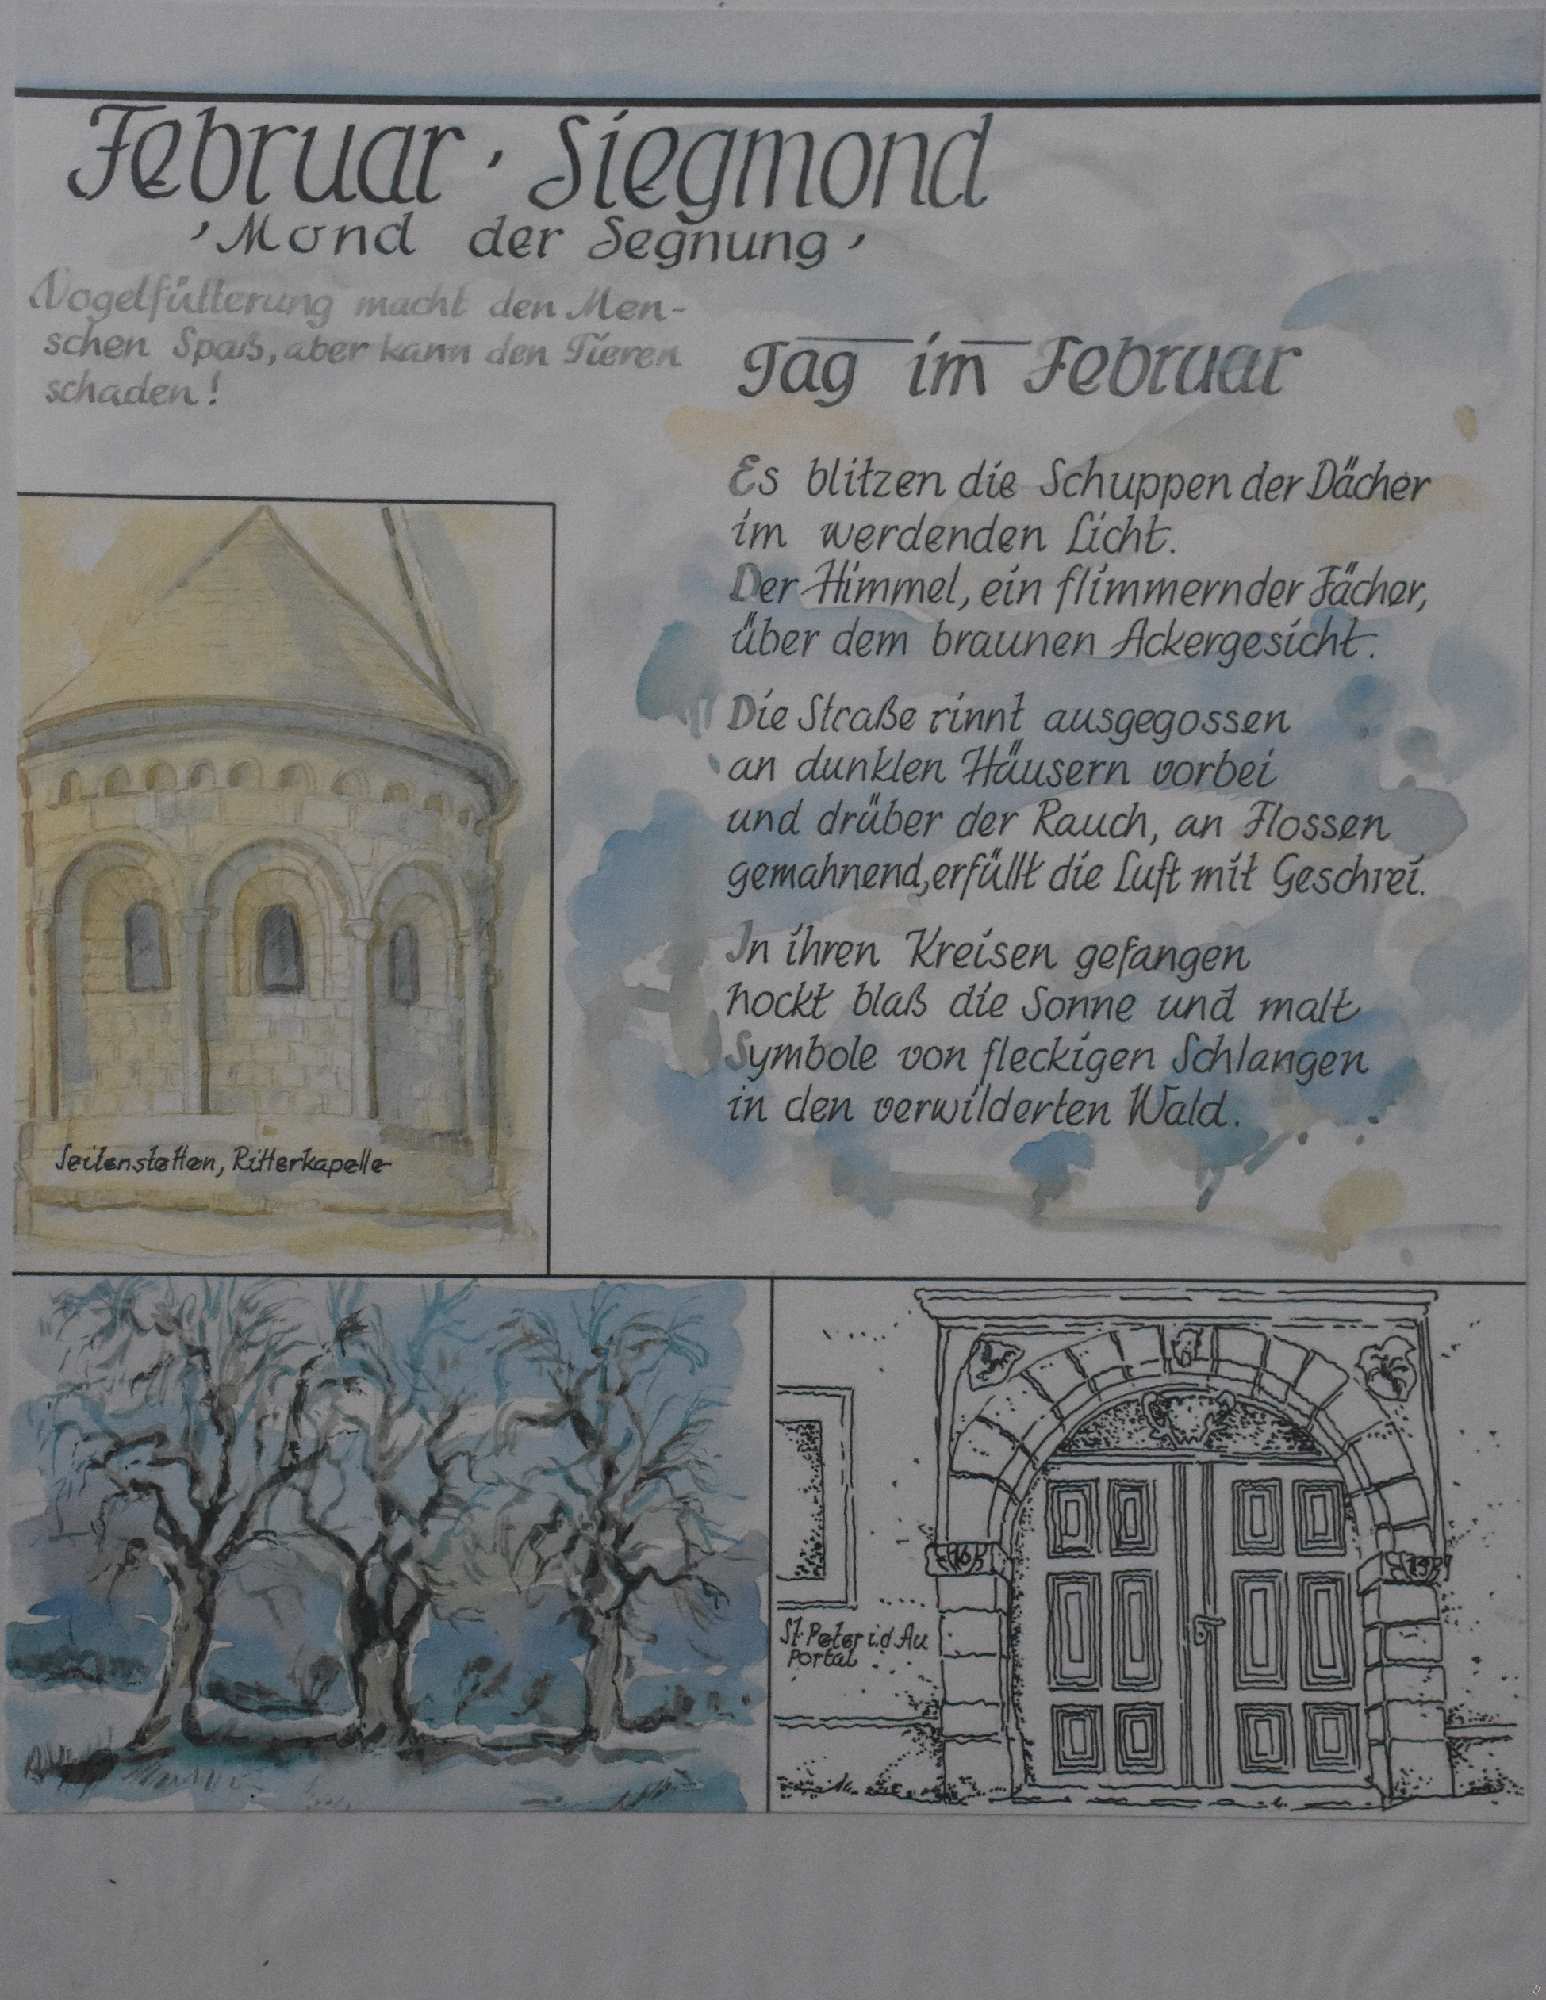 Februar · Siegmond
'Mond der Segnung'
Vogelfütterung macht den Men-
schen Spaß, aber kann den Tieren
schaden!
Tag im Februar
Es blitzen die Schuppen der Dächer
im werdenden Licht.
Der Himmel, ein flimmernder Fächer,
über dem braunen Ackergesicht.
Die Straße rinnt ausgegossen
an dunklen Häusern vorbei
und drüber der Rauch, an Flossen
gemahnend, erfüllt die Luft mit Geschrei.
In ihren Kreisen gefangen
hockt blaß die Sonne und malt
Symbole von fleckigen Schlangen
in den verwilderten Wald.
Seitenstetten, Ritterkapelle
St. Peter i.d Au
Portal